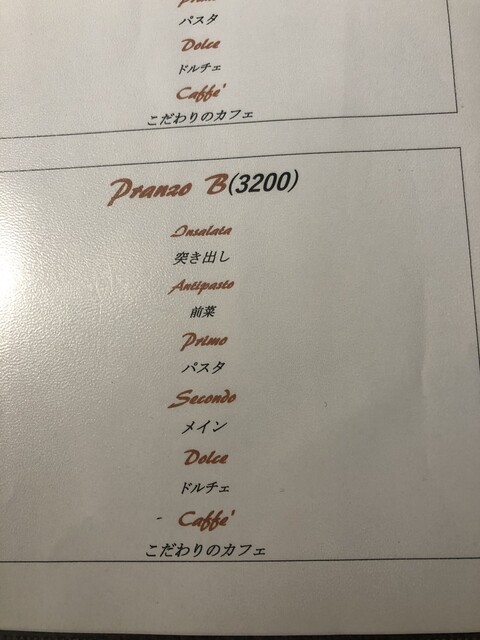 パスタ
Dolce
ドルチェ
Caffe'
こだわりのカフェ
Pranzo B(3200)
Insalata
突き出し
Antipasto
前菜
Primo
パスタ
Secondo
メイン
Dolce
ドルチェ
- Caffe'
こだわりのカフェ